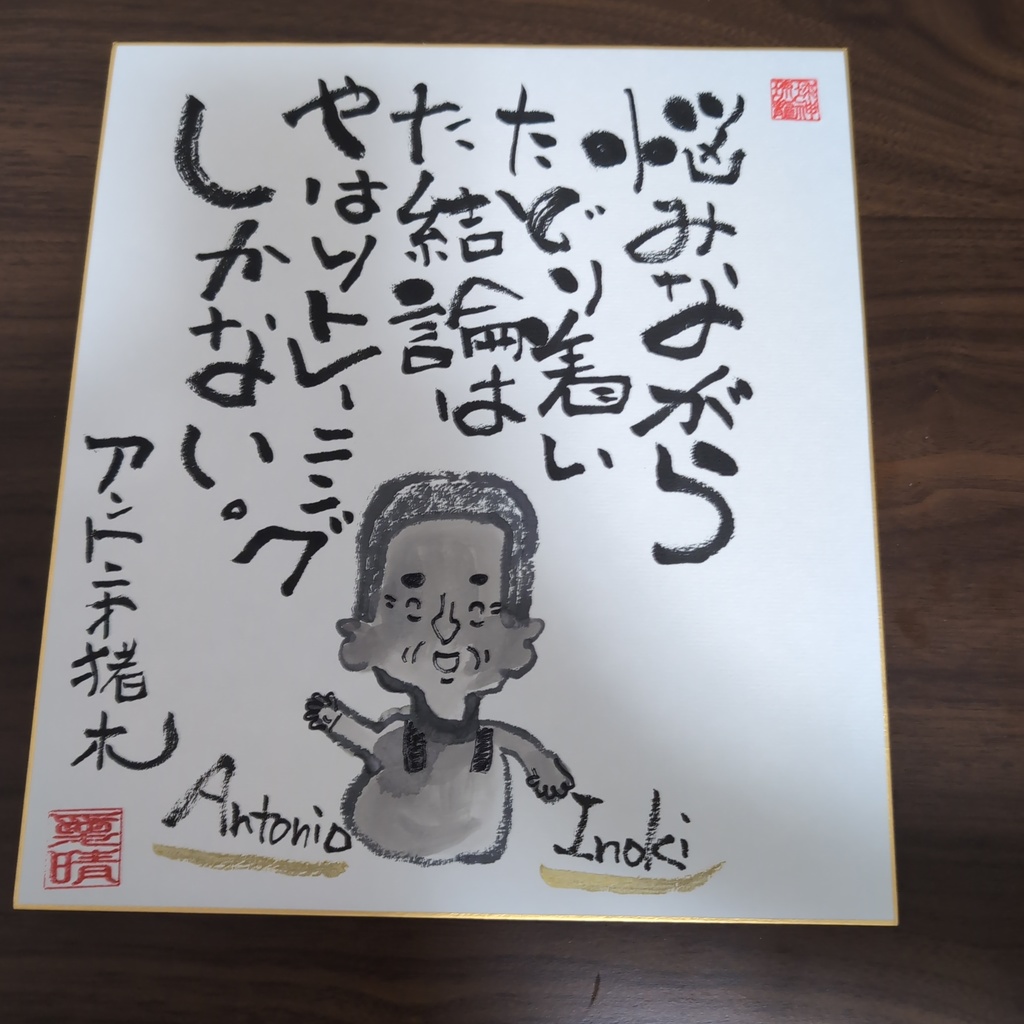 悩みながら
たどり着い
た結論は
やはりトレーニング
しかない。
アントニオ猪木
Antonio Inoki